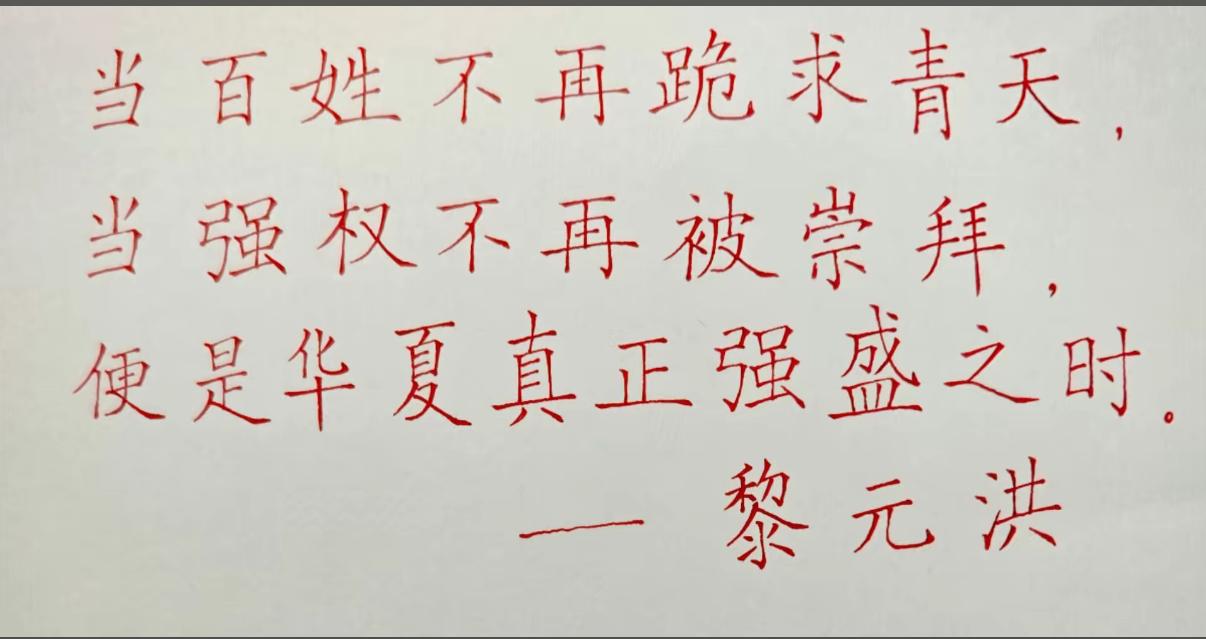 当百姓不再跪求青天，
当强权不再被崇拜，
便是华夏真正强盛之时。
——黎元洪